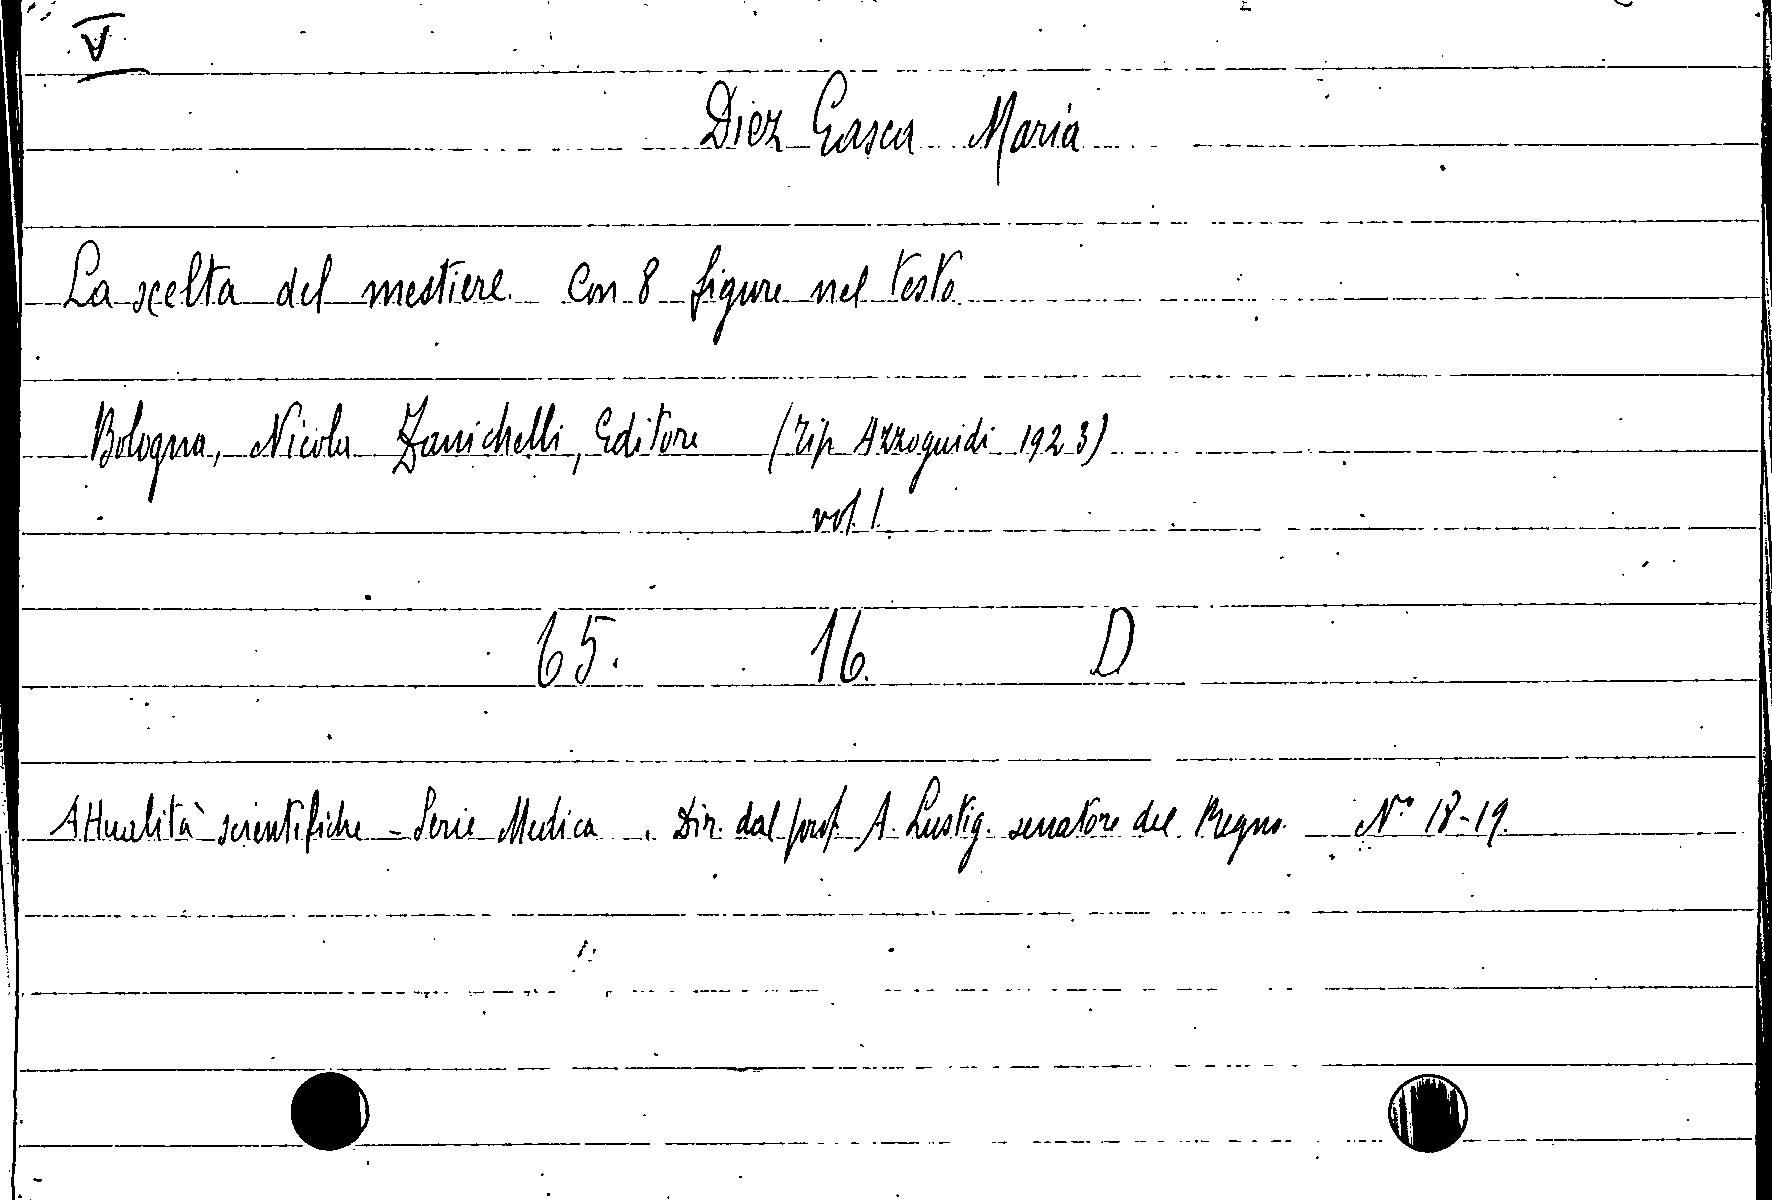 V
Diez Gasca Maria
La scelta del mestiere. Con 8 figure nel testo
Bologna, Nicola Zanichelli, Editore (Tip Azzoguidi 1923)
vol. 1.
65. 16. D
Attualità scientifiche - Serie Medica . Dir. dal prof. A. Lustig. senatore del Regno. N.° 18-19.